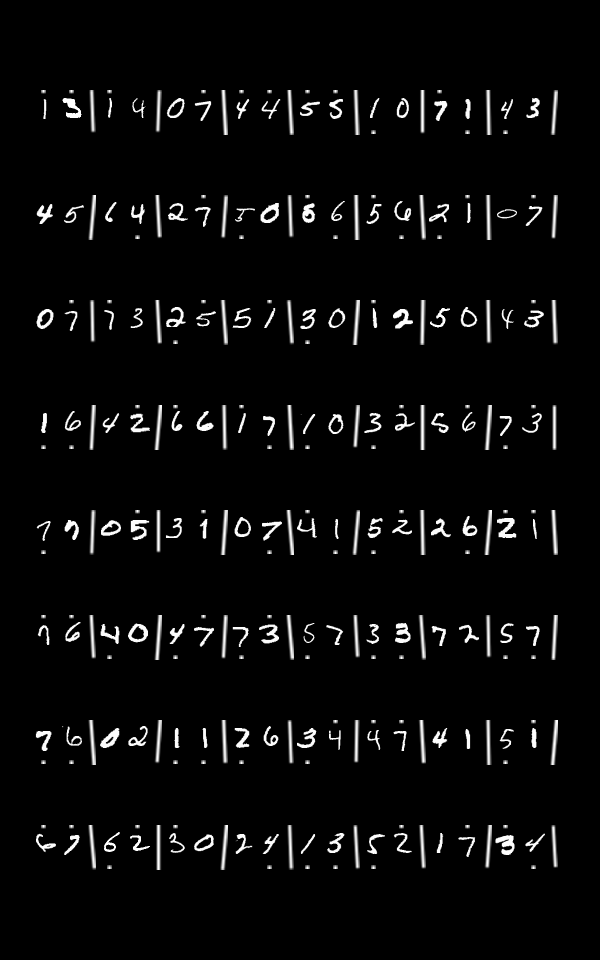 1̇ 3̇ | 1̇ 4 | 0 7̇ | 4̇ 4̇ | 5̇ 5̇ | 1̣ 0 | 7̇ 1̇ | 4̣ 3 |
4 5 | 6 4̣ | 2 7̇ | 5̣ 0 | 6̇ 6̣ | 5̇ 6̣ | 2̣ 1̇ | 0 7̇ |
0 7̇ | 7̇ 3 | 2̣ 5̇ | 5 1̇ | 3̣ 0 | 1̇ 2 | 5 0 | 4 3̇ |
1̣ 6̣ | 4 2̇ | 6̇ 6 | 1̇ 7̣ | 1̣ 0 | 3̣ 2̇ | 5 6̇ | 7̣ 3 |
7̣ 7 | 0 5̇ | 3 1̇ | 0 7̣ | 4̣ 1 | 5̣ 2̇ | 2 6̣ | 2̇ 1 |
7̇ 6̇ | 4̣ 0 | 4̣ 7̇ | 7 3̇ | 5̣ 7 | 3̣ 3̣ | 7 2 | 5̣ 7̣ |
7̣ 6̇ | 0 2 | 1̣ 1̣ | 2̣ 6 | 3̣ 4̇ | 4̇ 7̇ | 4 1 | 5̣ 1̇ |
6̇ 7̇ | 6̣ 2̇ | 3̇ 0 | 2 4̣ | 1̣ 3̣ | 5̣ 2̇ | 1 7 | 3̇ 4̣ |